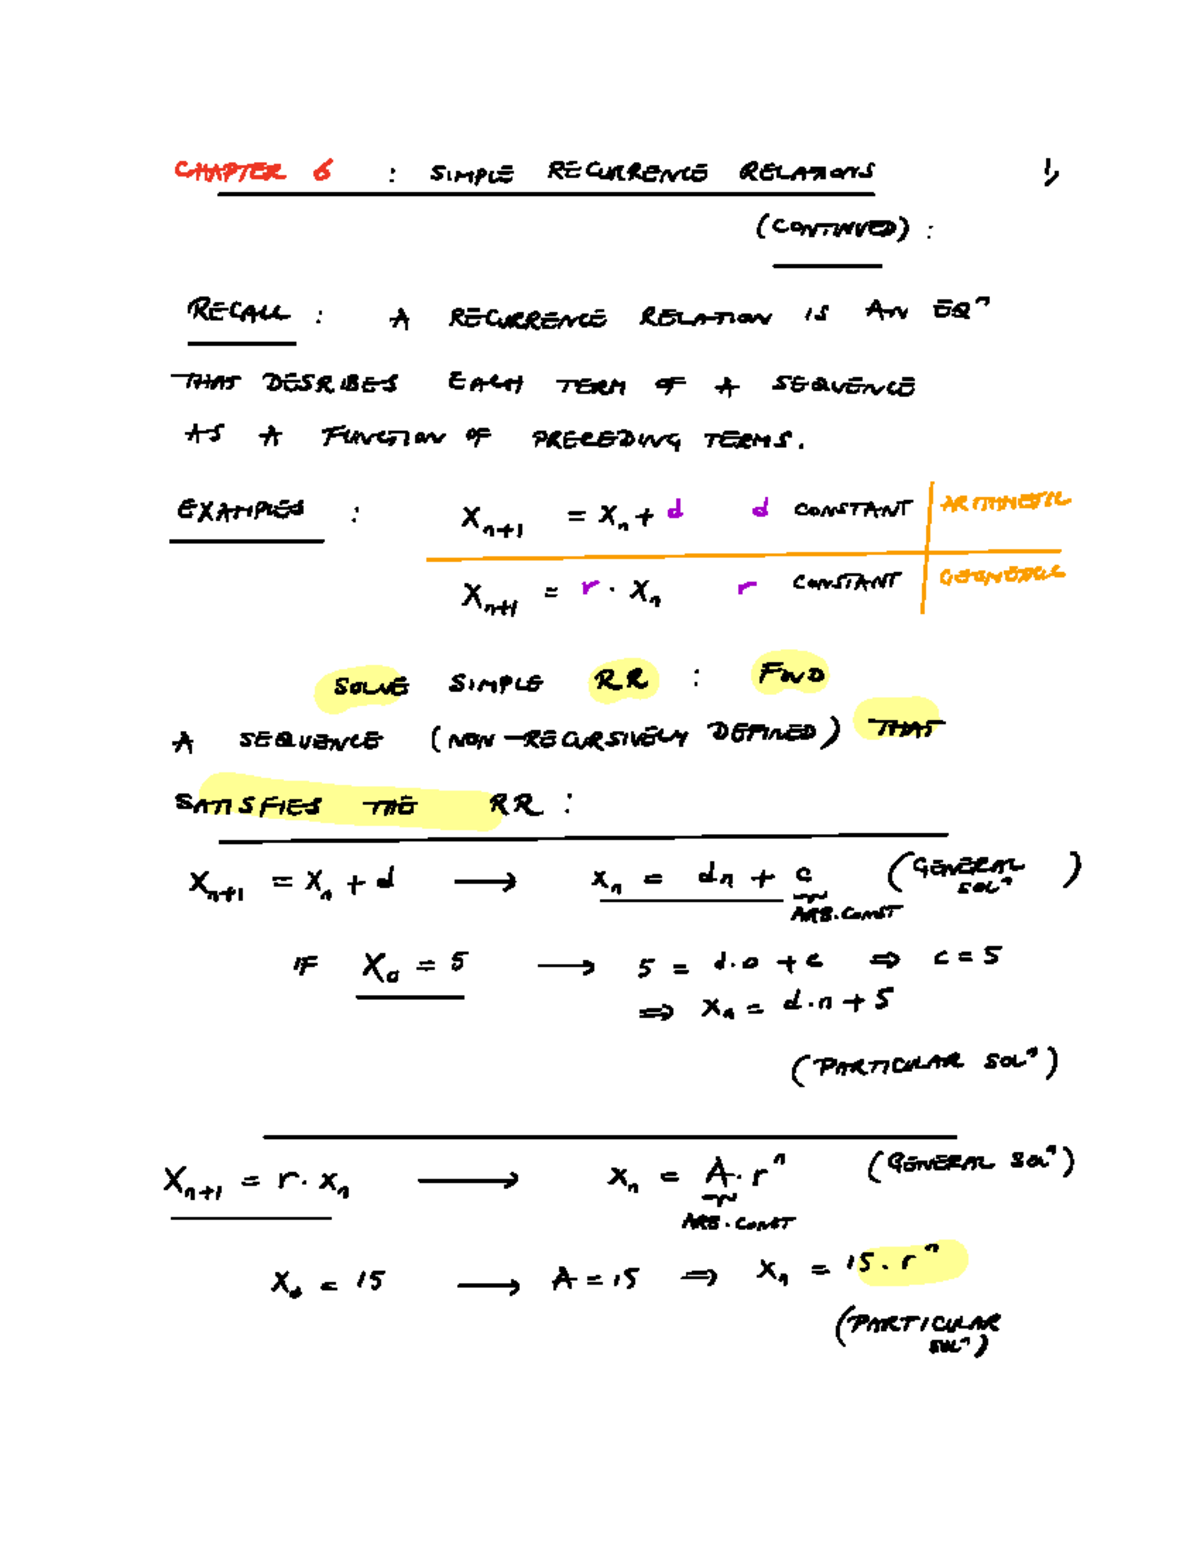 CHAPTER 6 : SIMPLE RECURRENCE RELATIONS 1,
(CONTINUED) :
RECALL : A RECURRENCE RELATION IS AN EQⁿ
THAT DESRIBES EACH TERM OF A SEQUENCE
AS A FUNCTION OF PRECEDING TERMS.
EXAMPLES : Xₙ₊₁ = Xₙ + d d CONSTANT ARITHMETIC
Xₙ₊₁ = r · Xₙ r CONSTANT GEOMETRIC
SOLVE SIMPLE RR : FIND
A SEQUENCE (NON-RECURSIVELY DEFINED) THAT
SATISFIES THE RR :
Xₙ₊₁ = Xₙ + d → Xₙ = dn + c (GENERAL SOLⁿ)
ARB. CONST
IF X₀ = 5 → 5 = d·0 + c ⇒ c = 5
⇒ Xₙ = d·n + 5
(PARTICULAR SOLⁿ)
Xₙ₊₁ = r · Xₙ → Xₙ = A · rⁿ (GENERAL SOLⁿ)
ARB. CONST
X₀ = 15 → A = 15 ⇒ Xₙ = 15 · rⁿ
(PARTICULAR SOLⁿ)